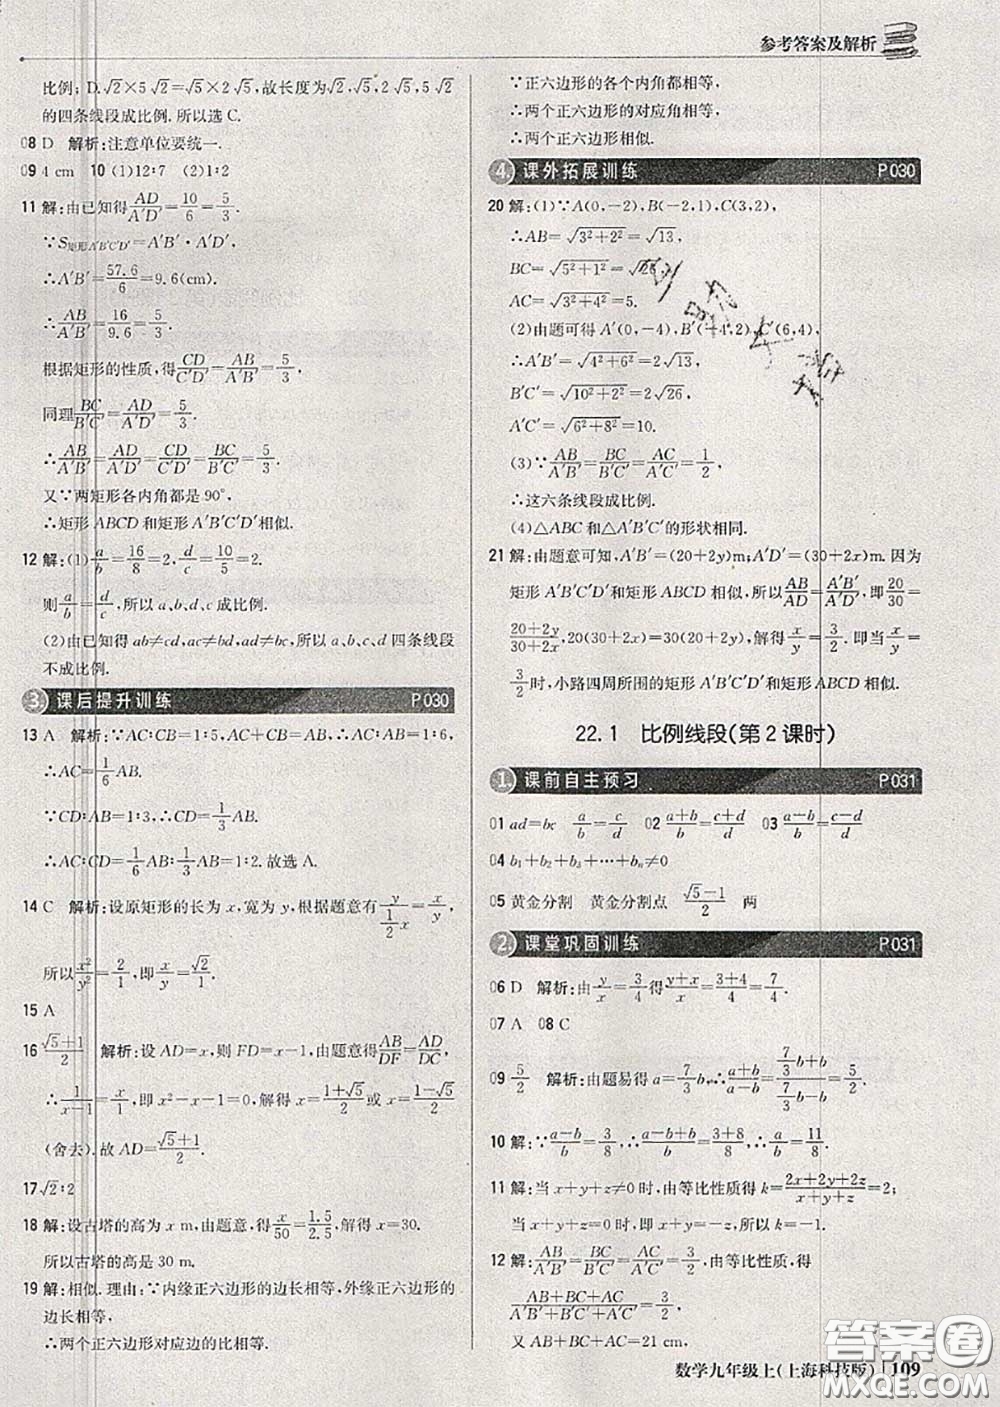 参考答案及解析
比例；D.√2×5√2=√5×2√5，故长度为√2，√5，2√5，5√2
的四条线段成比例.所以选C.
08 D 解析：注意单位要统一.
09 4 cm 10 (1)12∶7 (2)1∶2
11 解：由已知得AD/A′D′=10/6=5/3.
∵S矩形A′B′C′D′=A′B′·A′D′，
∴A′B′=57.6/6=9.6(cm).
∴AB/A′B′=16/9.6=5/3.
根据矩形的性质，得CD/C′D′=AB/A′B′=5/3.
同理BC/B′C′=AD/A′D′=5/3.
∴AB/A′B′=AD/A′D′=CD/C′D′=BC/B′C′=5/3.
又∵两矩形各内角都是90°，
∴矩形ABCD和矩形A′B′C′D′相似.
12 解：(1)a/b=16/8=2，d/c=10/5=2.
则a/b=d/c，所以a、b、d、c成比例.
(2)由已知得ab≠cd，ac≠bd，ad≠bc，所以a、b、c、d四条线段
不成比例.
3. 课后提升训练 P030
13 A 解析：∵AC∶CB=1∶5，AC+CB=AB，∴AC∶AB=1∶6，
∴AC=1/6AB.
∵CD∶AB=1∶3，∴CD=1/3AB.
∴AC∶CD=1/6AB∶1/3AB=1∶2.故选A.
14 C 解析：设原矩形的长为x，宽为y，根据题意有y/(1/2x)=x/y，
所以x²/y²=2/1，即x/y=√2/1.
15 A
16 (√5+1)/2 解析：设AD=x，则FD=x−1，由题意得AB/DF=AD/DC，
∴1/(x−1)=x/1，即x²−x−1=0，解得x=(1+√5)/2或x=(1−√5)/2
(舍去).故AD=(√5+1)/2.
17 √2∶2
18 解：设古塔的高为x m，由题意，得x/50=1.5/2.5，解得x=30.
所以古塔的高是30 m.
19 解：相似.理由：∵内缘正六边形的边长相等，外缘正六边形的
边长相等，
∴两个正六边形对应边的比相等.
∵正六边形的各个内角都相等，
∴两个正六边形的对应角相等，
∴两个正六边形相似.
4. 课外拓展训练 P030
20 解：(1)∵A(0，−2)，B(−2，1)，C(3，2)，
∴AB=√(3²+2²)=√13，
BC=√(5²+1²)=√26，
AC=√(3²+4²)=5.
(2)由题可得A′(0，−4)，B′(−4，2)，C′(6，4)，
∴A′B′=√(4²+6²)=2√13，
B′C′=√(10²+2²)=2√26，
A′C′=√(6²+8²)=10.
(3)∵AB/A′B′=BC/B′C′=AC/A′C′=1/2，
∴这六条线段成比例.
(4)△ABC和△A′B′C′的形状相同.
21 解：由题意可知，A′B′=(20+2y)m，A′D′=(30+2x)m.因为
矩形A′B′C′D′和矩形ABCD相似，所以AB/AD=A′B′/A′D′，即20/30=
(20+2y)/(30+2x)，20(30+2x)=30(20+2y)，解得x/y=3/2.即当x/y=
3/2时，小路四周所围的矩形A′B′C′D′和矩形ABCD相似.
22.1 比例线段(第2课时)
1. 课前自主预习 P031
01 ad=bc a/b=c/d 02 (a+b)/b=(c+d)/d 03 (a−b)/b=(c−d)/d
04 b₁+b₂+b₃+…+bₙ≠0
05 黄金分割 黄金分割点 (√5−1)/2 两
2. 课堂巩固训练 P031
06 D 解析：由y/x=3/4得(y+x)/x=(3+4)/4=7/4.
07 A 08 C
09 5/2 解析：由题易得a=7/3b，∴(a+b)/(a−b)=(7/3b+b)/(7/3b−b)=5/2.
10 解：∵(a−b)/b=3/8，∴(a−b+b)/b=(3+8)/8，∴a/b=11/8.
11 解：当x+y+z≠0时，由等比性质得k=(2x+2y+2z)/(x+y+z)=2；
当x+y+z=0时，即x+y=−z时，所以k=−1.
12 解：AB/A′B′=BC/B′C′=AC/A′C′=3/2，由等比性质，得
(AB+BC+AC)/(A′B′+B′C′+A′C′)=3/2，
又AB+BC+AC=21 cm，
数学九年级上(上海科技版) 109
答案圈
MXQE.COM